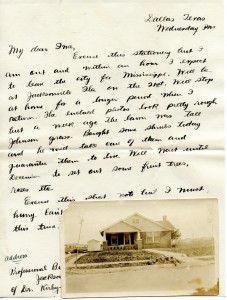 Dallas Texas
Wednesday Pm
My dear Ima,
Excuse this stationery but I
am out and within an hour I expect
to leave the city for Mississippi. Will be
at Jacksonville Fla on the 21st. Will stop
at home for a longer period when I
return. The enclosed photos look pretty rough
but a week ago the lawn was tall
Johnson grass. Bought some shrubs today
and he will take care of them and
guarantee them to live. Will wait until
to set out some fruit trees,
roses etc.
Excuse this short note but I must
hurry.
this time
Address
Professional B
Jackson
of Dr. Kirby